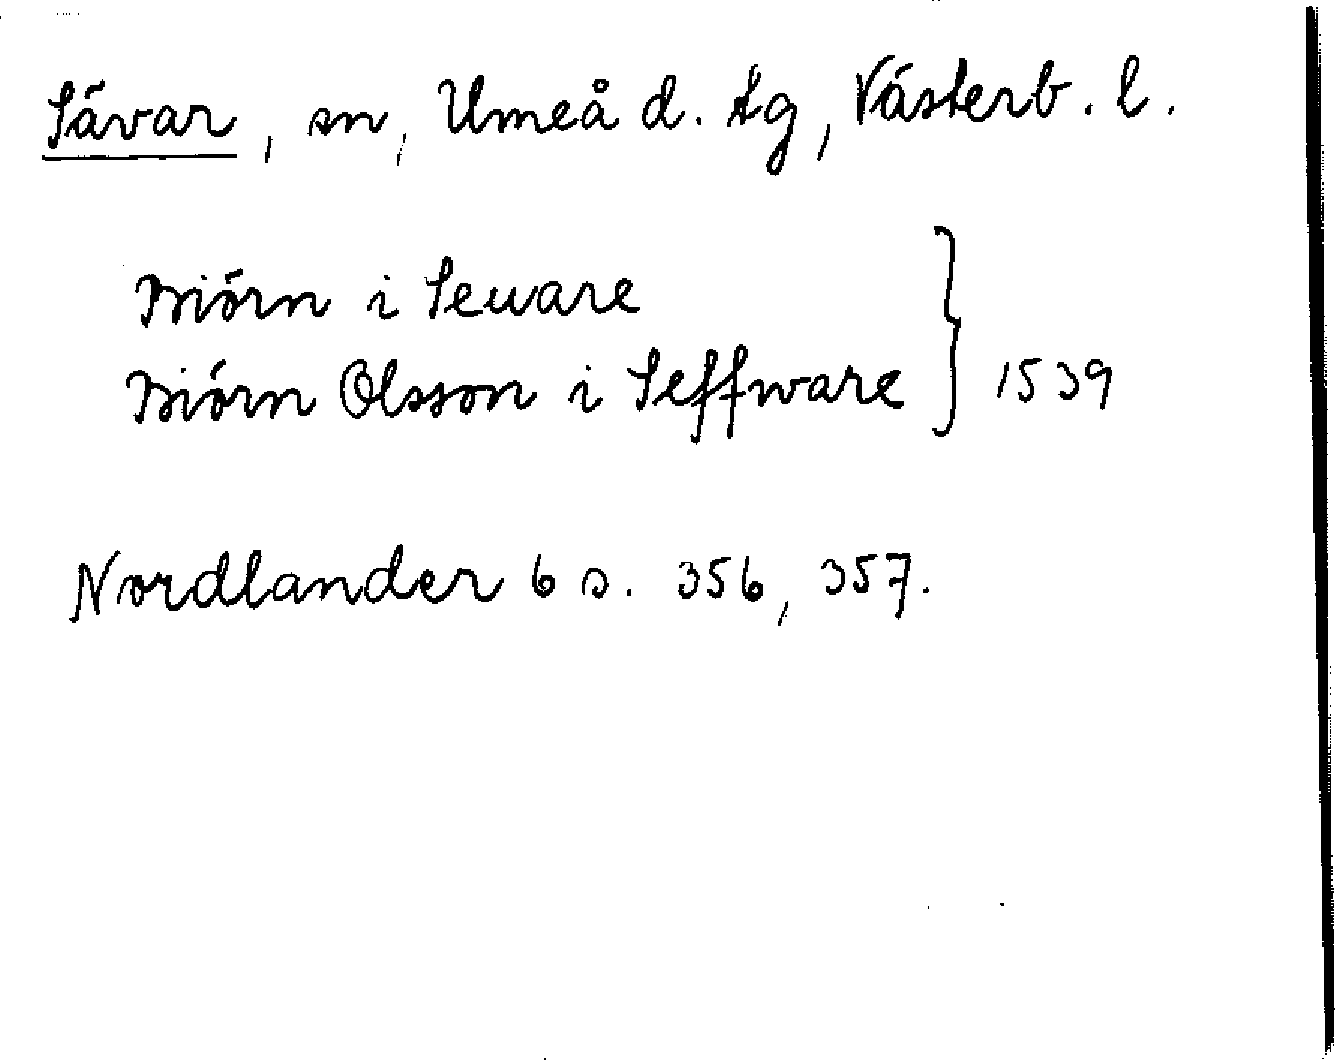 Sävar, sn, Umeå d. tg, Västerb. l.
Biörn i Seuare
Biörn Olsson i Seffware } 1539
Nordlander 6 s. 356, 357.